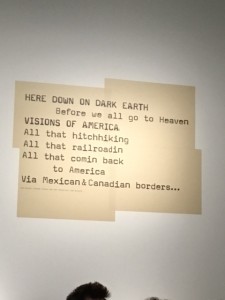 HERE DOWN ON DARK EARTH
Before we all go to Heaven
VISIONS OF AMERICA
All that hitchhiking
All that railroadin
All that comin back
to America
Via Mexican & Canadian borders...